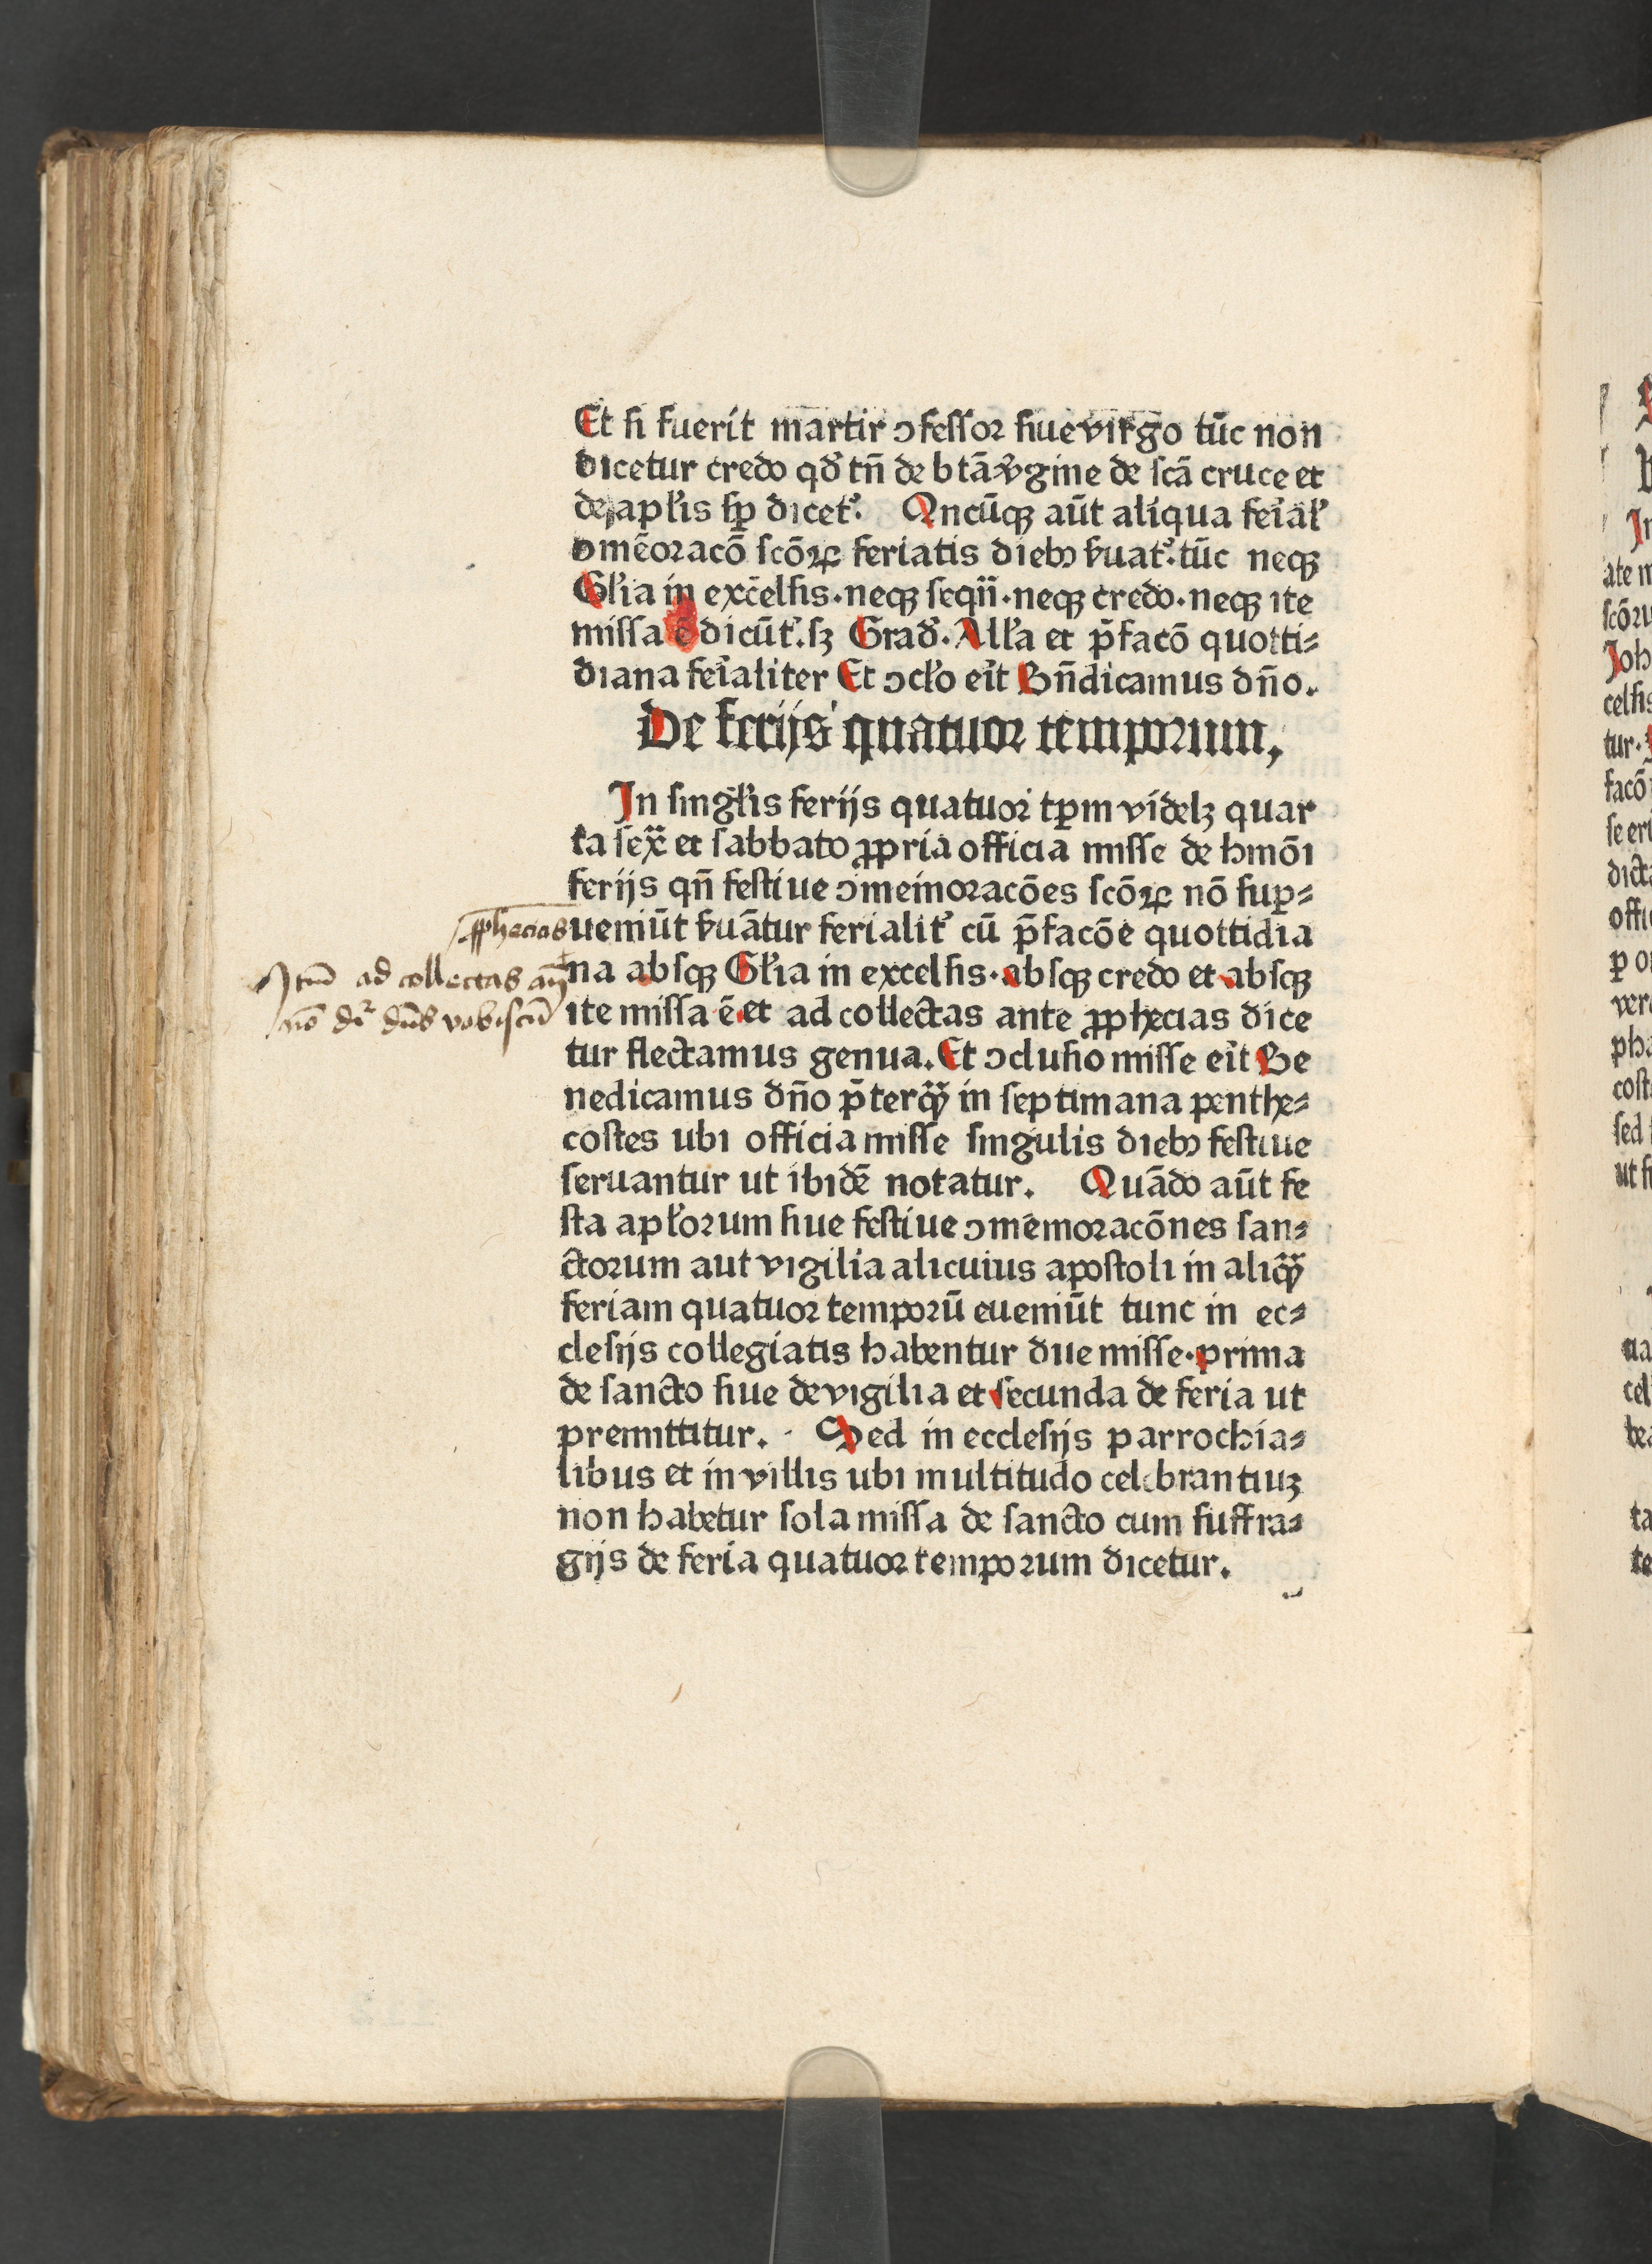 Et si fuerit martir ↄfessor siue virgo tūc non
dicetur credo qđ tn̄ de btā v̾gine de scā cruce et
de apl̾is sꝑ dicet᷑. Qncūqꝫ aūt aliqua fei̾al̾
ↄmēoracō scōꝝ feriatis diebꝯ ẜuat᷑. tūc neqꝫ
Gl̾ia in excelsis. neqꝫ seqn̄. neqꝫ credo. neqꝫ ite
missa ē dicūt᷑. sꝫ Grad̾. All̾a et p̄facō quotti⸗
diana fei̾aliter Et ↄcl̾o ei̾t Bn̄dicamus dn̄o.
De ferijs quatuor temporum,
In singl̾is ferijs quatuor tꝑm videlꝫ quar
ta sex̄ et sabbato ꝓpria officia misse de hmōi
ferijs qn̄ festiue ↄmemoracōes scōꝝ nō suꝑ⸗
ueniūt ẜuātur ferialit᷑ cū p̄facōe quottidia
na absqꝫ Gl̾ia in excelsis. absqꝫ credo et absqꝫ
ite missa ē. et ad collectas ante ꝓphecias dice
tur flectamus genua. Et ↄclusio misse ei̾t Be
nedicamus dn̄o p̄terqͣꝫ in septimana penthe⸗
costes ubi officia misse singulis diebꝯ festiue
seruantur ut ibidē notatur. Quādo aūt fe
sta apl̾orum siue festiue ↄmemoracōnes san⸗
ctorum aut vigilia alicuius apostoli in aliqͣꝫ
feriam quatuor temporū eueniūt tunc in ec⸗
clesijs collegiatis habentur due misse. prima
de sancto siue de vigilia et secunda de feria ut
premittitur. Sed in ecclesijs parrochia⸗
libus et in villis ubi multitudo celebrantiuꝫ
non habetur sola missa de sancto cum suffra⸗
gijs de feria quatuor temporum dicetur.
ꝓphecias
Itm̄ ad collectas an̄
nō dr̄ dn̄s vobiscū